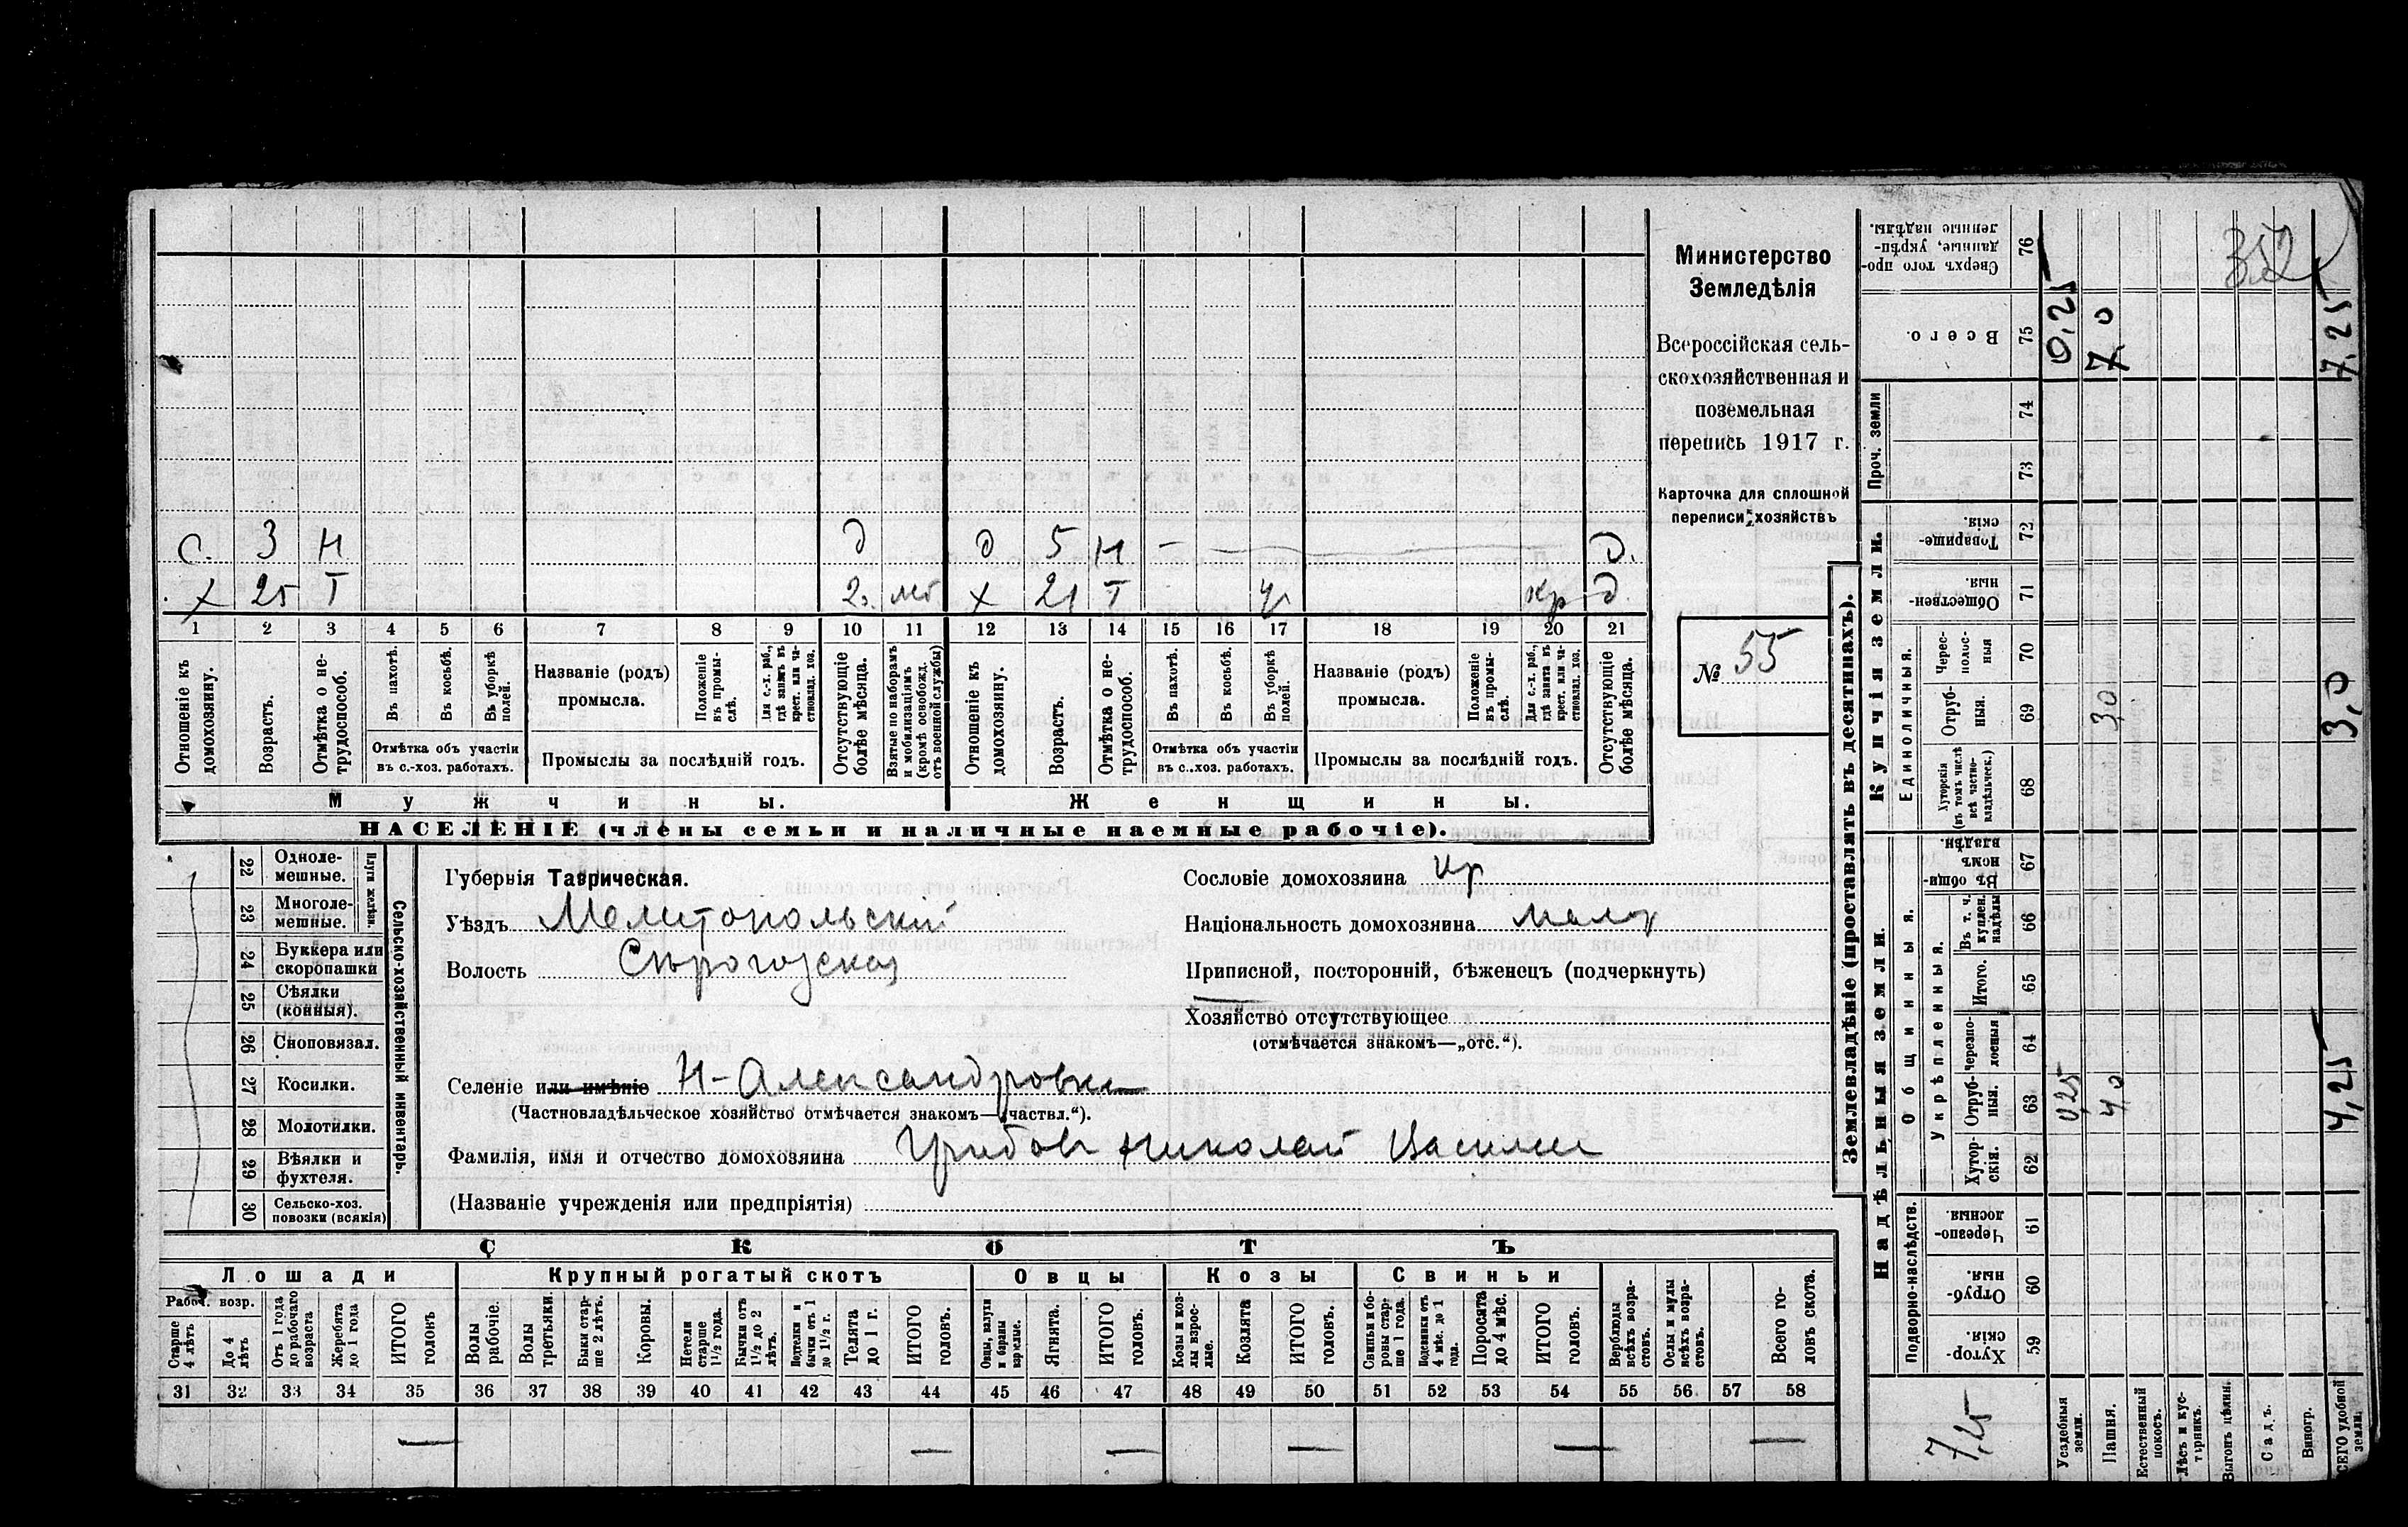 352
с. 3 Н д д 5 Н — д.
х 25 Т 2. мб х 21 Т — кр д
1 2 3 4 5 6 7 8 9 10 11 12 13 14 15 16 17 18 19 20 21
Отношеніе къ домохозяину.
Возрастъ.
Отмѣтка о нетрудоспособ.
Въ пахотѣ.
Въ косьбѣ.
Въ уборкѣ полей.
Отмѣтка объ участіи въ с.-хоз. работахъ.
Названіе (родъ) промысла.
Положеніе въ промыслѣ.
Для с.-х. раб., гдѣ занятъ въ крест. или частновлад. хоз.
Промыслы за послѣдній годъ.
Отсутствующіе болѣе мѣсяца.
Взятые по наборамъ и мобилизаціямъ (кромѣ освобожд. отъ военной службы)
Отношеніе къ домохозяину.
Возрастъ.
Отмѣтка о нетрудоспособ.
Въ пахотѣ.
Въ косьбѣ.
Въ уборкѣ полей.
Отмѣтка объ участіи въ с..хоз. работахъ.
Названіе (родъ) промысла.
Положеніе въ промыслѣ.
Для с.-х. раб., гдѣ занята въ крест. или частновлад. хоз.
Промыслы за послѣдній годъ.
Отсутствующіе болѣе мѣсяца.
Мужчины.
Женщины.
НАСЕЛЕНІЕ (члены семьи и наличные наемные рабочіе).
Министерство
Земледѣлія
Всероссійская сель-
скохозяйственная и
поземельная
перепись 1917 г.
Карточка для сплошной
переписи хозяйствъ
№ 55
22 Одноле-мешные.
23 Многоле-мешные.
Плуги желѣзн.
24 Буккера или скоропашки
25 Сѣялки (конныя).
26 Сноповязал.
27 Косилки.
28 Молотилки.
29 Вѣялки и фухтеля.
30 Сельско-хоз. повозки (всякія)
Сельско-хозяйственный инвентарь.
Губернія Таврическая.
Уѣздъ Мелитопольскій
Волость Сѣрогозская
Селеніе или имѣніе Н-Александровка
(Частновладѣльческое хозяйство отмѣчается знакомъ—„частвл.“).
Фамилія, имя и отчество домохозяина Грибов Николай Васил
(Названіе учрежденія или предпріятія)
Сословіе домохозяина кр
Національность домохозяина мало
Приписной, посторонній, бѣженецъ (подчеркнуть)
Хозяйство отсутствующее
(отмѣчается знакомъ—„отс.“).
СКОТЪ
Лошади Крупный рогатый скотъ Овцы Козы Свиньи
Рабоч. возр.
Старше 4 лѣтъ
До 4 лѣтъ
Отъ 1 года до рабочаго возраста
Жеребята до 1 года
ИТОГО головъ
Волы рабочіе.
Волы третьяки.
Быки старше 2 лѣтъ.
Коровы.
Нетели старше 1½ года.
Бычки отъ 1½ до 2 лѣтъ.
Подтелки и бычки отъ 1 до 1½ г.
Телята до 1 г.
ИТОГО головъ.
Овцы, валухи и бараны взрослые.
Ягнята.
ИТОГО головъ.
Козы и козлы взрослые.
Козлята
ИТОГО головъ.
Свиньи и боровы старше 1 года.
Подсвинки отъ 4 мѣс. до 1 года.
Поросята до 4 мѣс.
ИТОГО головъ.
Верблюды всѣхъ возрастовъ.
Ослы и мулы всѣхъ возрастовъ.
Всего головъ скота.
31 32 33 34 35 36 37 38 39 40 41 42 43 44 45 46 47 48 49 50 51 52 53 54 55 56 57 58
— — — — — —
Землевладѣніе (проставлять въ десятинахъ).
Надѣльныя земли.
Купчія земли.
Проч. земли
Подворно-наслѣдств.
Общинныя.
Укрѣпленныя.
Единоличныя.
Хуторскія 59
Отрубныя. 60
Черезполосныя 61
Хуторскія. 62
Отрубныя. 63
Черезполосныя 64
Итого. 65
Въ т. ч. куплен. надѣлы 66
Въ общинномъ владѣн. 67
Хуторскія (въ томъ числѣ всѣ частновладѣльческ.) 68
Отрубныя. 69
Черезполосныя 70
Общественныя. 71
Товарищескія. 72
73
74
Всего. 75
Сверхъ того проданные, укрѣпленные надѣлы. 76
7,25
Усадебныя земли. 0,25 0,25
Пашня. 4,0 3,0 7,0
Естественный покосъ.
Лѣсъ и кустарникъ.
Выгонъ цѣлин.
Садъ.
Виногр.
ВСЕГО удобной земли. 4,25 3,0 7,25